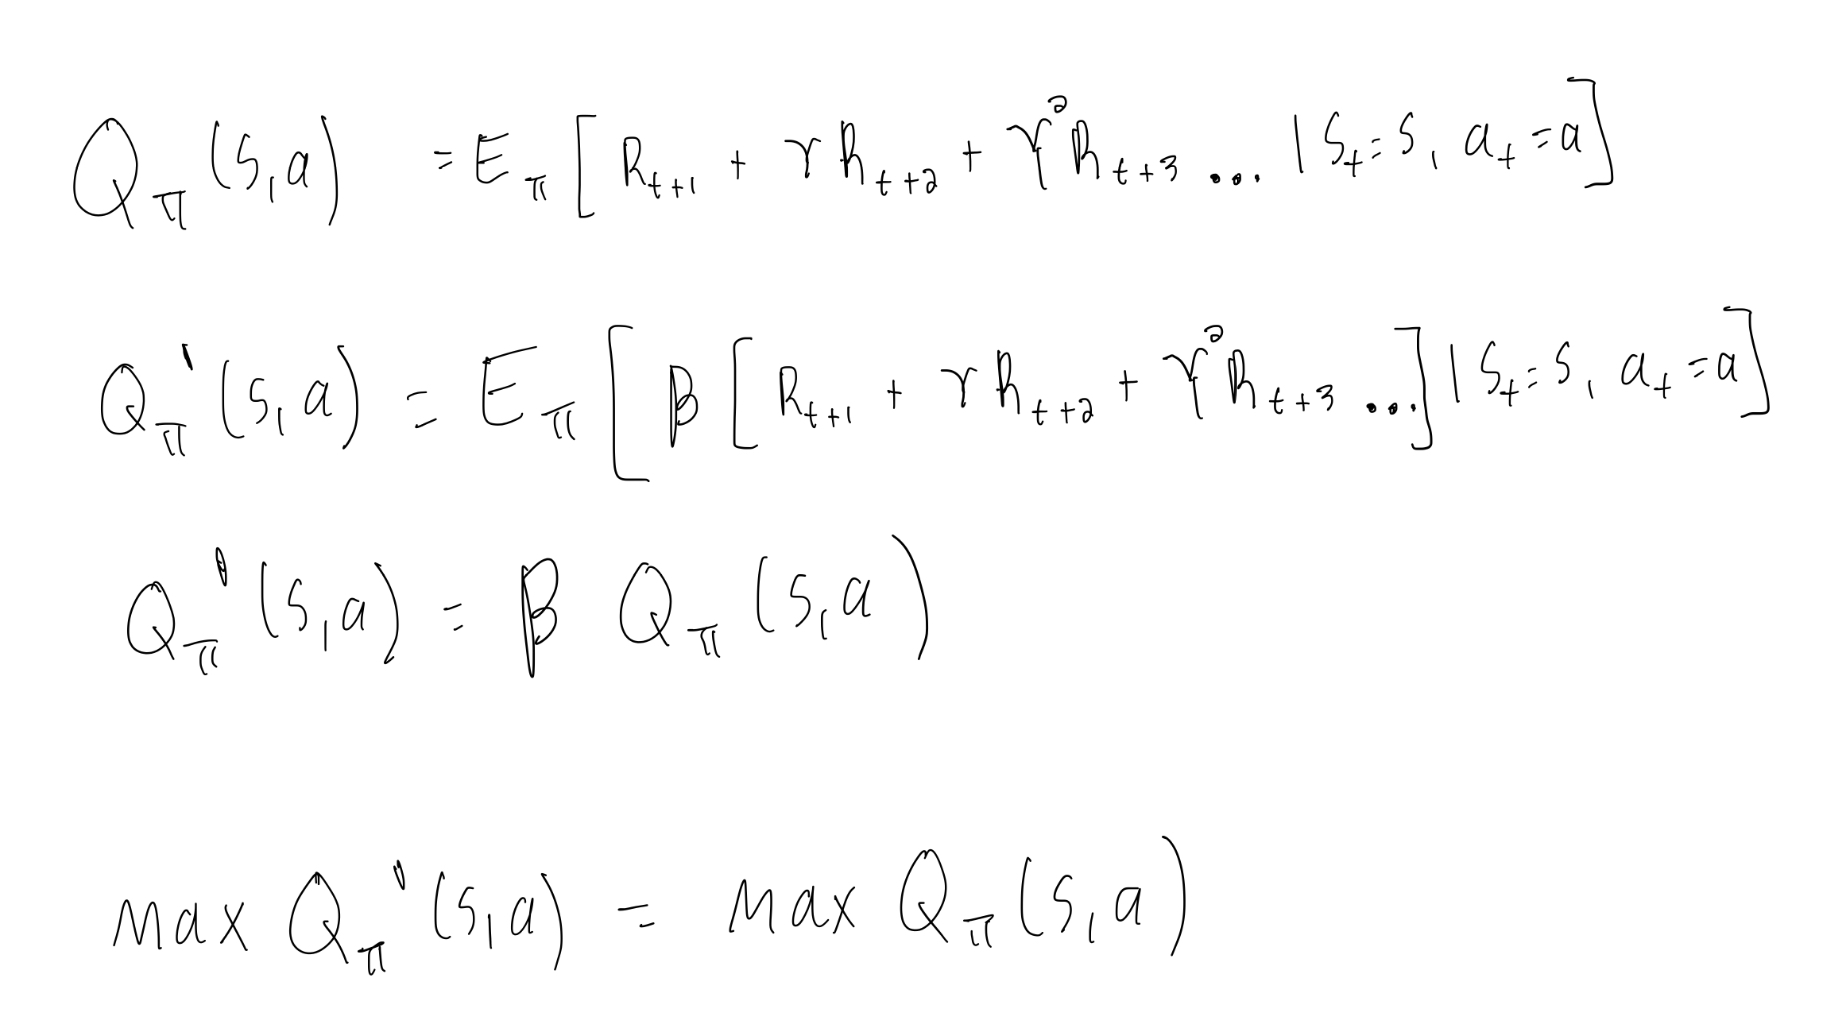 Q_π (s,a) = E_π [ R_{t+1} + γ R_{t+2} + γ² R_{t+3} ... | S_t = s, a_t = a ]
Q_π' (s,a) = E_π [ β [ R_{t+1} + γ R_{t+2} + γ² R_{t+3} ... ] | S_t = s, a_t = a ]
Q_π' (s,a) = β Q_π (s,a)
max Q_π' (s,a) = max Q_π (s,a)